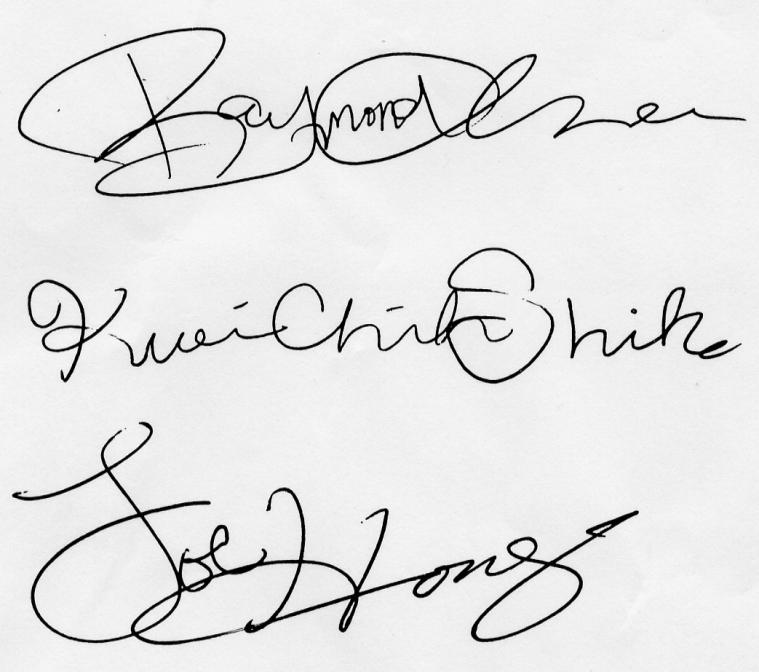 Raymond Olsen
Kwei Chih Shih
Joe Hong